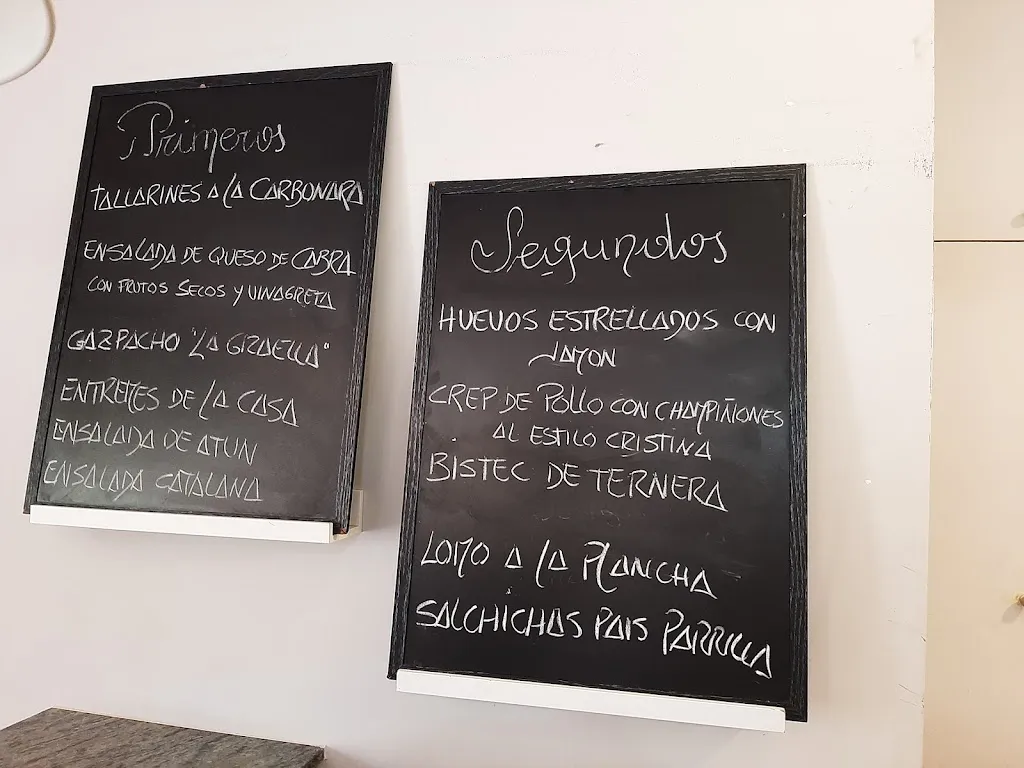 Primeros
TALLARINES A LA CARBONARA
ENSALADA DE QUESO DE CABRA
CON FRUTOS SECOS Y VINAGRETA
GAZPACHO "LA GRAELLA"
ENTREMES DE LA CASA
ENSALADA DE ATUN
ENSALADA CATALANA
Segundos
HUEVOS ESTRELLADOS CON
JAMON
CREP DE POLLO CON CHAMPIÑONES
AL ESTILO CRISTINA
BISTEC DE TERNERA
LOMO A LA PLANCHA
SALCHICHAS PAIS PARRILLA